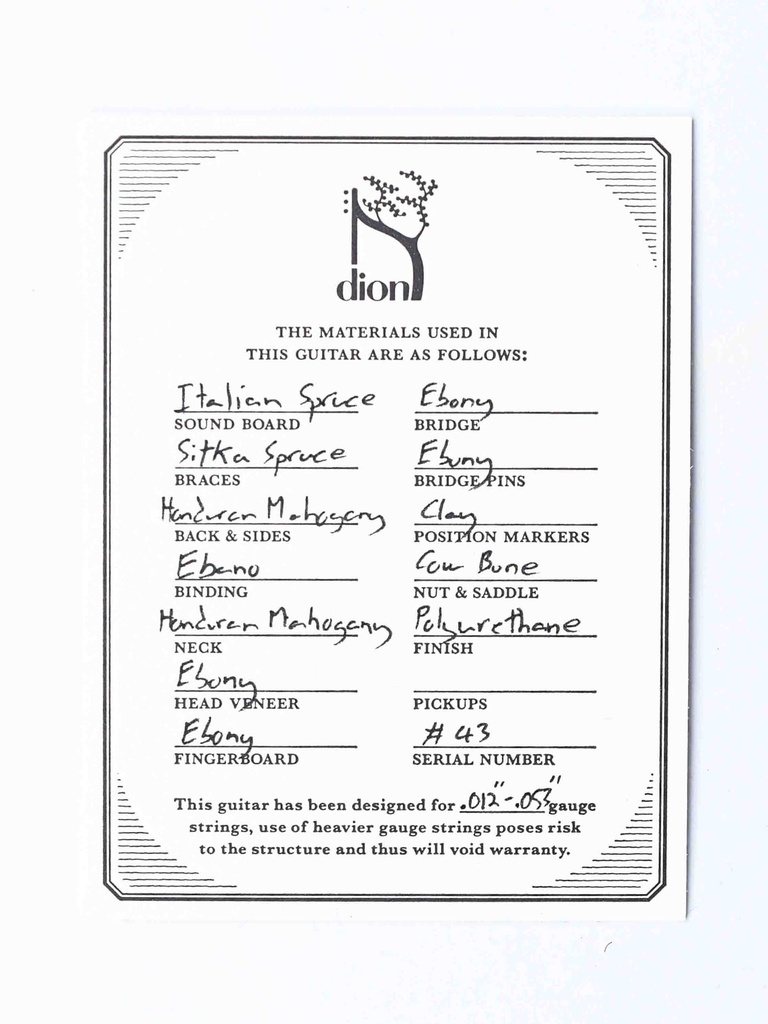 dion
THE MATERIALS USED IN
THIS GUITAR ARE AS FOLLOWS:
Italian Spruce
SOUND BOARD
Sitka Spruce
BRACES
Honduran Mahogany
BACK & SIDES
Ebano
BINDING
Honduran Mahogany
NECK
Ebony
HEAD VENEER
Ebony
FINGERBOARD
Ebony
BRIDGE
Ebony
BRIDGE PINS
Clay
POSITION MARKERS
Cow Bone
NUT & SADDLE
Polyurethane
FINISH
PICKUPS
# 43
SERIAL NUMBER
This guitar has been designed for .012"-.053" gauge
strings, use of heavier gauge strings poses risk
to the structure and thus will void warranty.